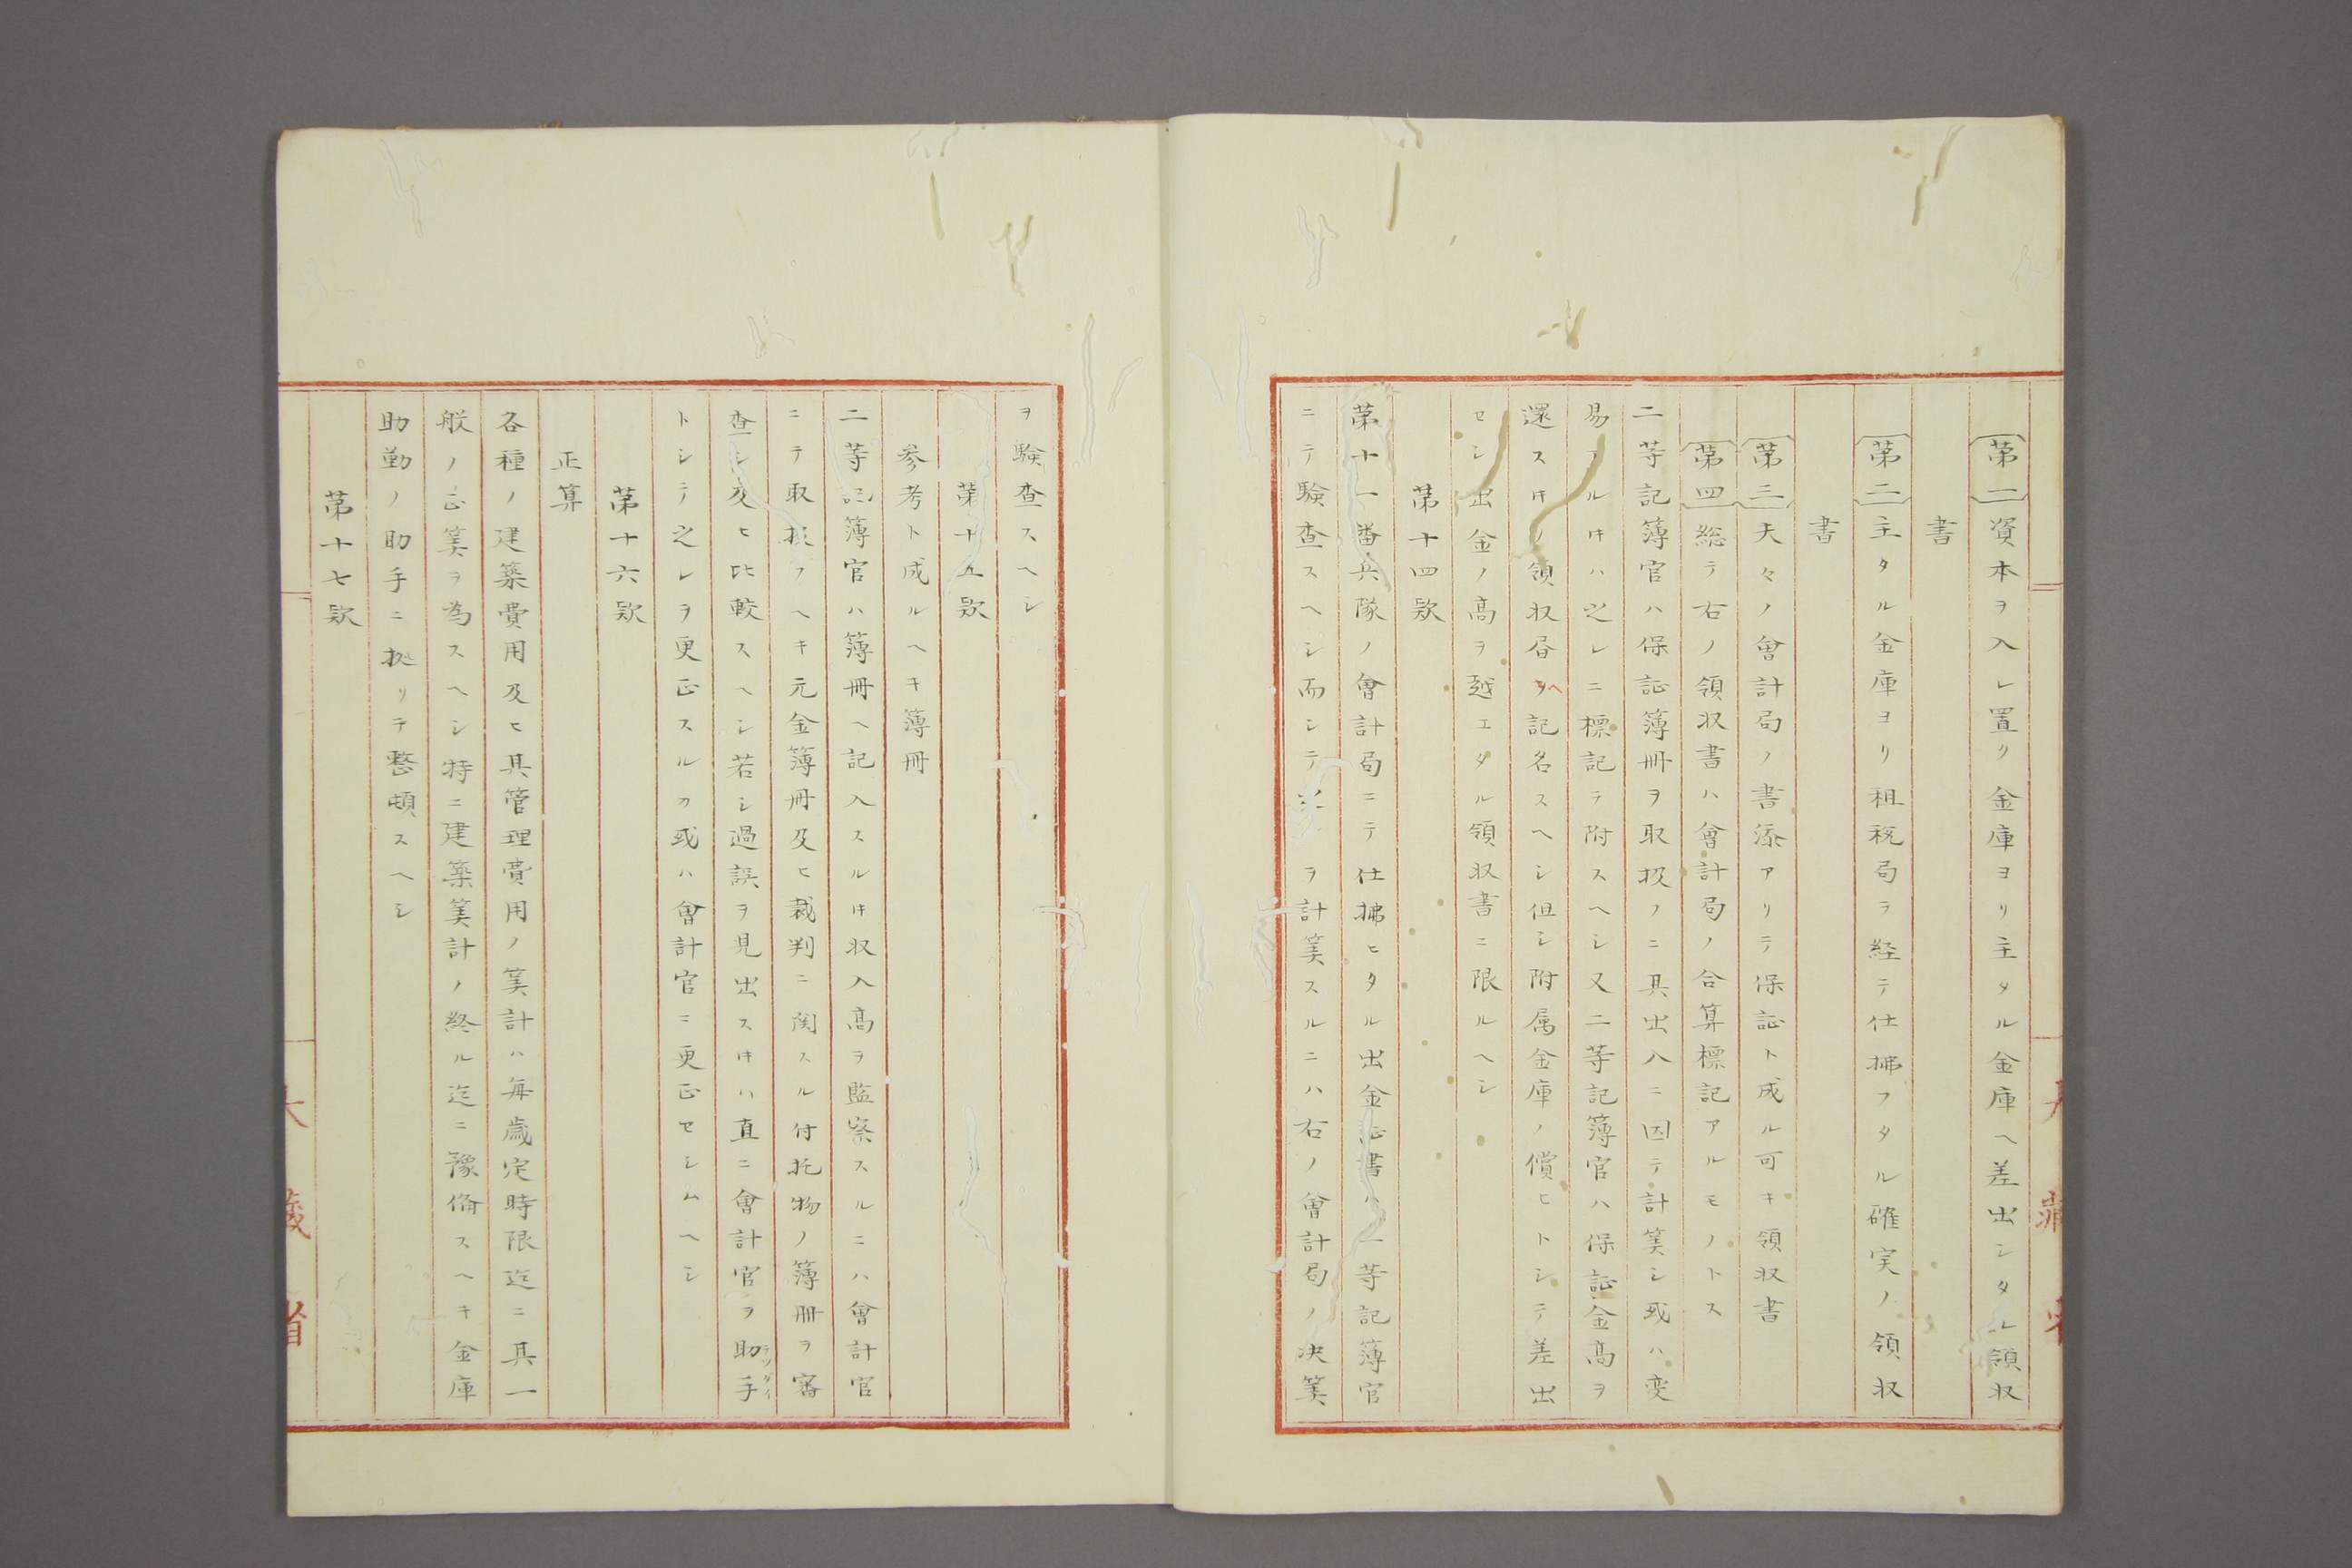 〔第一〕資本ヲ入レ置リ金庫ヨリ主タル金庫ヘ差出シタル領収
書
〔第二〕主タル金庫ヨリ租税局ヲ経テ仕拂フタル確実ノ領収
書
〔第三〕夫々ノ會計局ノ書添アリテ保証ト成ル可キ領収書
〔第四〕総テ右ノ領収書ハ會計局ノ合算標記アルモノトス
二等記簿官ハ保証簿冊ヲ取扱フニ其出入ニ因テ計筭シ或ハ変
易スルキハ之レニ標記ヲ附スヘシ又二等記簿官ハ保証金高ヲ
還スキノ領収書ヘ記名スヘシ但シ附属金庫ノ償ヒトシテ差出
セシ出金ノ高ヲ越エタル領収書ニ限ルヘシ
第十四欵
第十一番兵隊ノ會計局ニテ仕拂ヒタル出金証書ハ一等記簿官
ニテ験査スヘシ而シテ ヲ計筭スルニハ右ノ會計局ノ决筭
ヲ験査スヘシ
第十五欵
参考ト成ルヘキ簿冊
二等記簿官ハ簿冊ヘ記入スルキ収入高ヲ監察スルニハ會計官
ニテ取扱フヘキ元金簿冊及ヒ裁判ニ関スル付托物ノ簿冊ヲ審
査シ及ヒ比較スヘシ若シ過誤ヲ見出スキハ直ニ會計官ヲ助手テツダイ
トシテ之レヲ更正スルカ或ハ會計官ニ更正セシムヘシ
第十六欵
正算
各種ノ建築費用及ヒ其管理費用ノ筭計ハ毎歳定時限迄ニ其一
般ノ正筭ヲ為スヘシ特ニ建築筭計ノ終ル迄ニ豫備スヘキ金庫
助勤ノ助手ニ拠リテ整頓スヘシ
第十七欵
大藏省